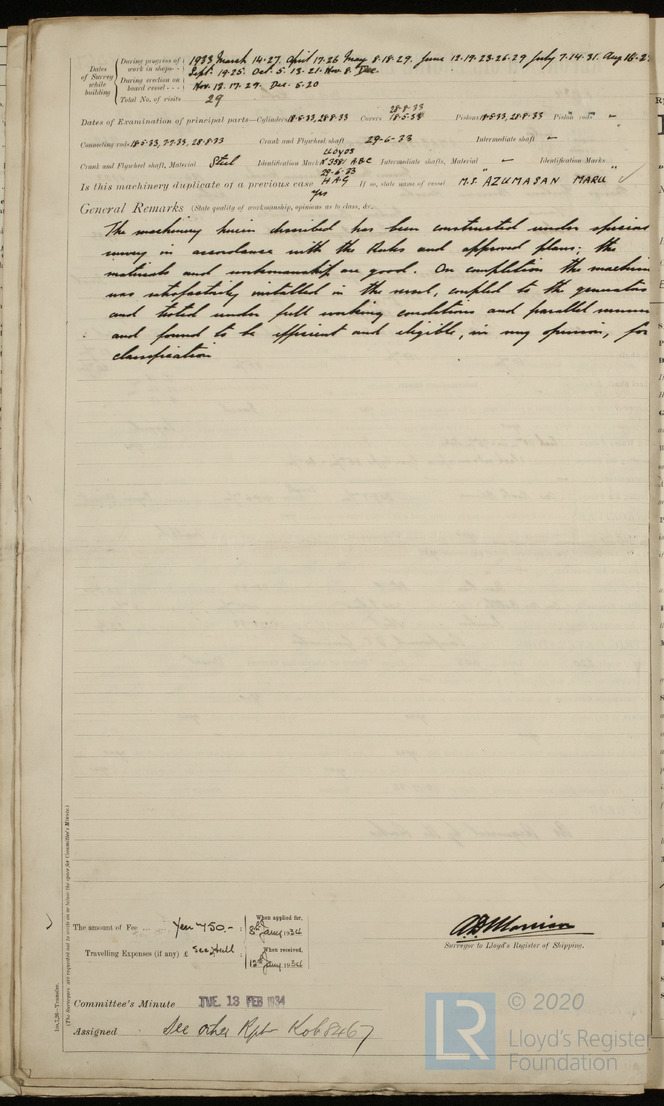 Dates of Survey while building
During progress of work in shops - - 1933 March 14·27. April 17·26 May 8·18·29. June 12·19·23·26·29 July 7·14·31. Aug 16·2
Sept. 19·25. Oct. 5. 13. 21. Nov. 8. Dec.
During erection on board vessel - - - Nov. 13. 17. 29. Dec. 5·20
Total No. of visits 29
28-8-33
Dates of Examination of principal parts—Cylinders 18-5-33, 28-8-33 Covers 18-5-33 Pistons 18-5-33, 28-8-33 Piston rods –
Connecting rods 18-5-33, 7-7-33, 28-8-33 Crank and Flywheel shaft 29-6-33 Intermediate shaft –
LLOYDS
Crank and Flywheel shaft, Material Steel Identification Mark No 3381 ABC Intermediate shafts, Material – Identification Marks
29-6-33
Is this machinery duplicate of a previous case HAG If so, state name of vessel M.S. "AZUMASAN MARU"
Yes
General Remarks (State quality of workmanship, opinions as to class, &c.
The machinery herein described has been constructed under special
survey in accordance with the Rules and approved plans; the
materials and workmanship are good. On completion the machine
was satisfactorily installed in the vessel, coupled to the generators
and tested under full working conditions and parallel running
and found to be efficient and eligible, in my opinion, for
classification
The amount of Fee ... Yen 450.- When applied for, 8th Jany 1934
Travelling Expenses (if any) £ See Hull When received, 12th Jany 1934
Surveyor to Lloyd's Register of Shipping.
Committee's Minute TUE. 13 FEB 1934
Assigned See other Rpt Kob 8467
(The Surveyors are requested not to write on or below the space for Committee's Minute.)
LR
© 2020
Lloyd's Register
Foundation